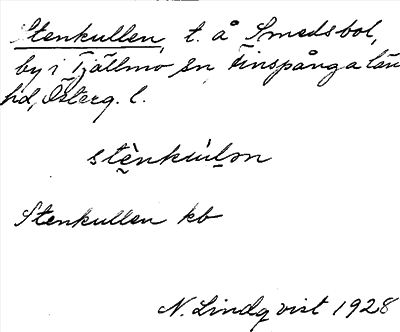 Stenkullen, t. å Smedsbol,
by i Tjällmo sn Finspånga län
hd, Österg. l.
stènkùlən
Stenkullen kb
N. Lindqvist 1928